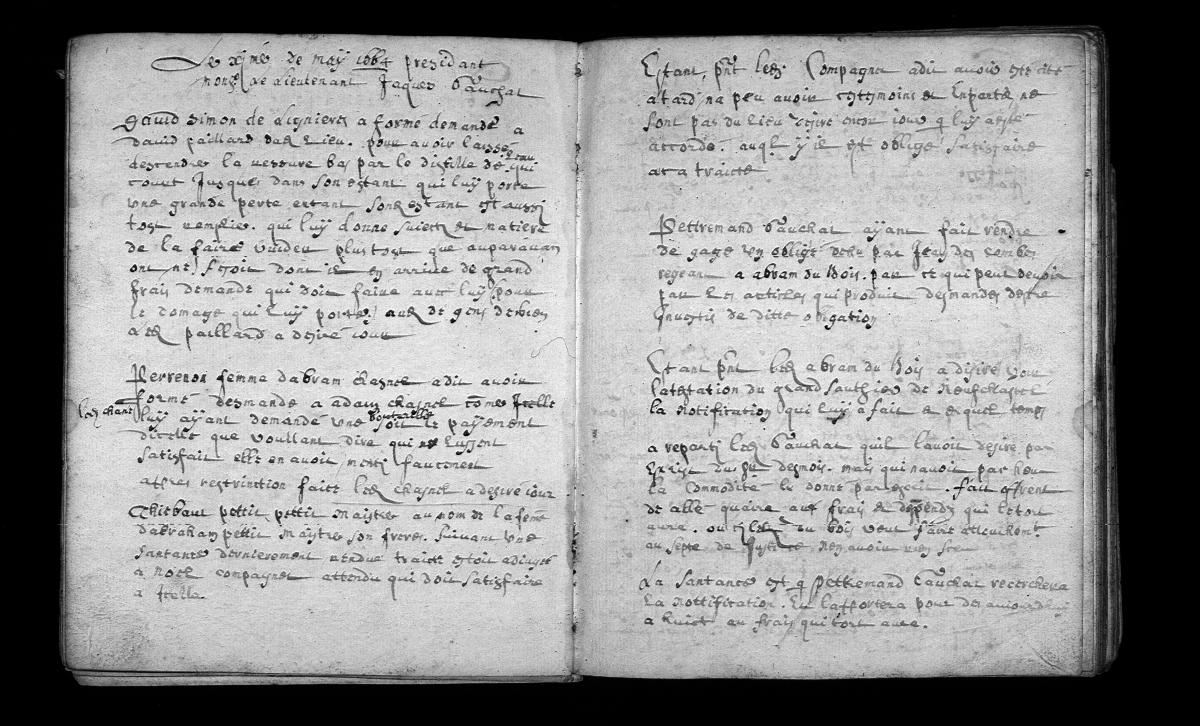 Le xjme de may 1664 presidant
monsr le lieutenant Jaques Cauchat
David Simon de lignieres a formé demande a
david paillard dud Lieu. pour avoir laissé
descendre la verrure bas par le distille de leau qui
court Jusques dans son estant qui luy porte
une grande perte estant son estant est aussi
tost remplie. qui luy donne suiect et matiere
de la faire vuider plustost que auparavan
ont ne fesoit dont il en arrive de grand
frais demande qui doit faire avec luy pour
le domage qui luy porte aud de gens de bien
Led paillard a desiré iour
Perrenon femme dabram chasnel a dit avoir
formé desmande a adam chasnel comes Icelle
led chasnel luy ayant demandé une bouteille soit le payement
dicelle que voullant dire qui ne lussent
satisfait elle en avoit menti faucement
aspres restrinction faite led chasnel a desiré iour
Thiebaut pettit pettit maistre au nom de la feme
dabraham pettit maistre son frere. suivant une
santance dernierement rendue traicte estoit adiugée
a noel compagnet attendu qui doit satisfaire
a Icelle.
Estant pnt led Compagnet a dit avoir esté cité
a tard na peu avoir ces tesmoins et Enpartie ne
sont pas du lieu desire encor iour q luy a esté
accordé. auql y il est obligé satisfaire
at a traicte
Pettremand Cauchat ayant fait vendre
de gage un obligé deue par Jean des combes
regeant a abram du bois. par ce qui peut devoir
par les articles qui produit desmandes destre
Investis de ditte obligation
Estant pnt led abram du bois a desiré voir
latestation du grand sauthier de Neufchastel
la Notification qui luy a fait et en quel temps
a reparti led Cauchat quil lavoit desiré par
Escrist du sr desmois. mais qui navoit pas heu
la commodité le donné par escrit. fait offrent
de allé querre aux frais et despends qui le tort
aura. ou sy led du bois veut faire
au septe de Justice Nen avoir rien sceu
La Santance est q Pettremand Cauchat recerchera
La Nottification. Et lapportera pour des aujourdhuy
a huict au frais qui tort aura.